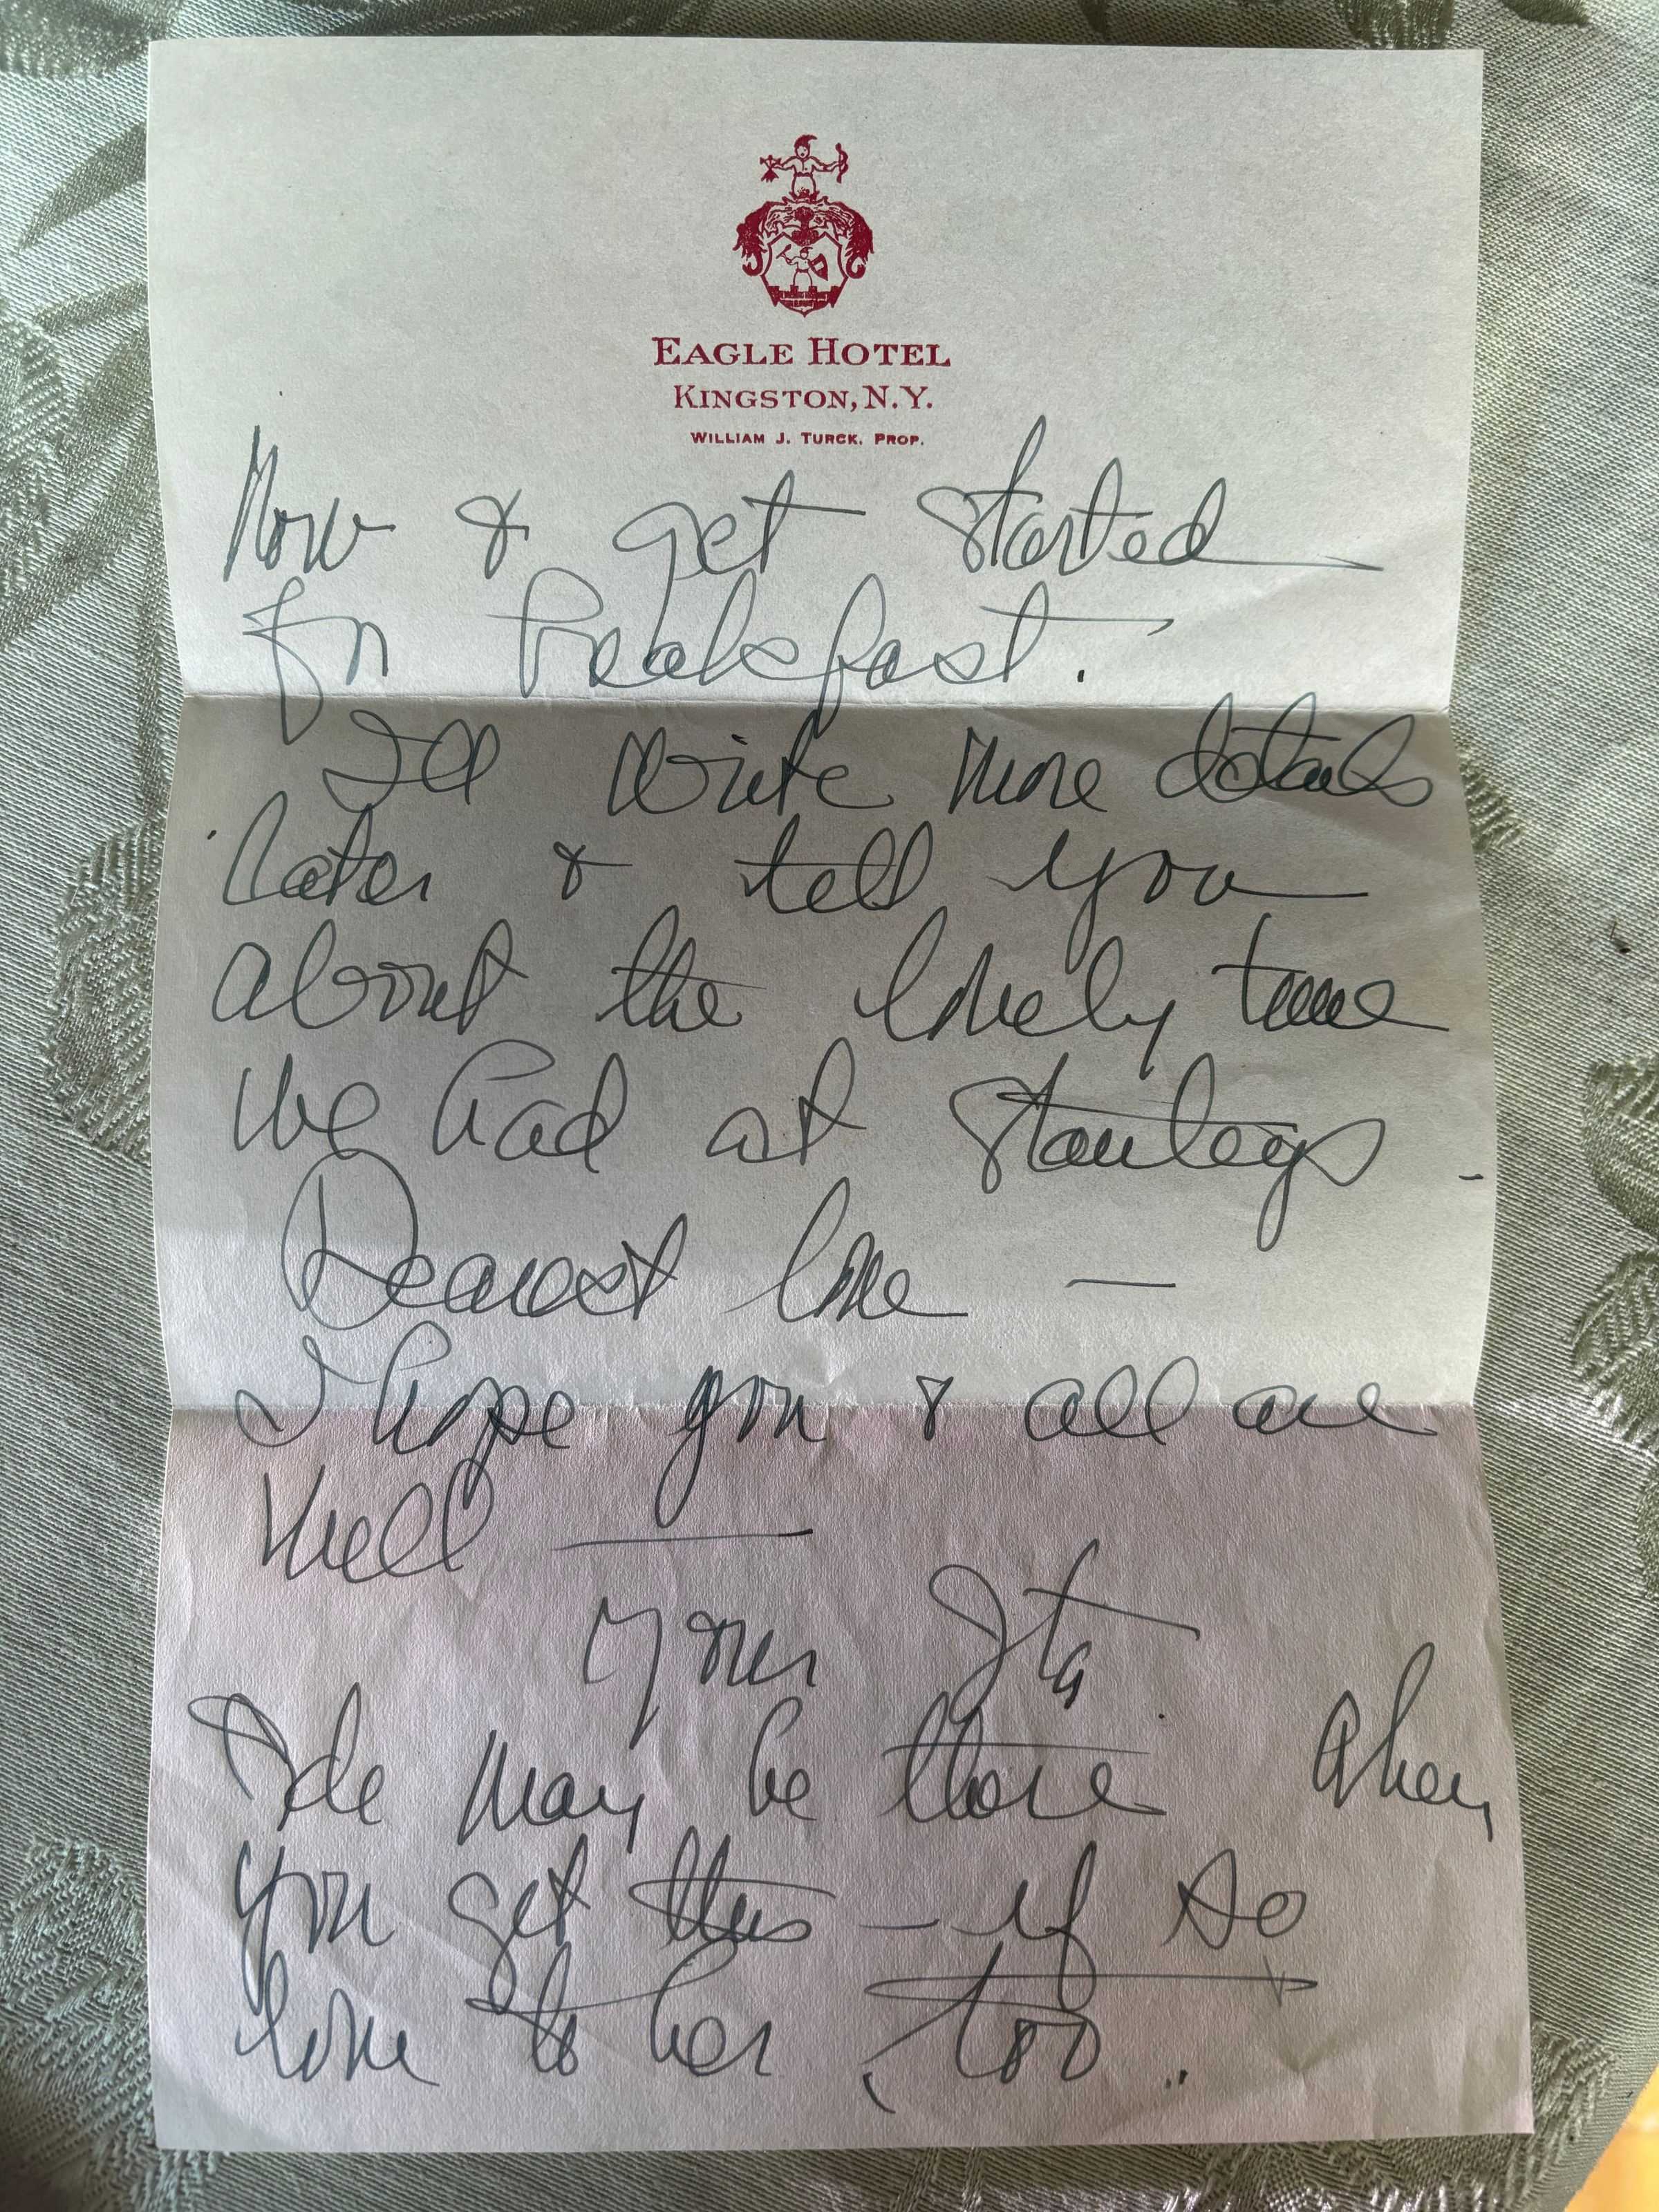 EAGLE HOTEL
KINGSTON, N.Y.
WILLIAM J. TURCK, PROP.
now & get started
for breakfast.
I'll write more details
later & tell you
about the lovely time
we had at Stanleys -
Dearest love —
I hope you & all are
well —
Your Ita
Ide may be there when
you get this - if so
love to her, too.